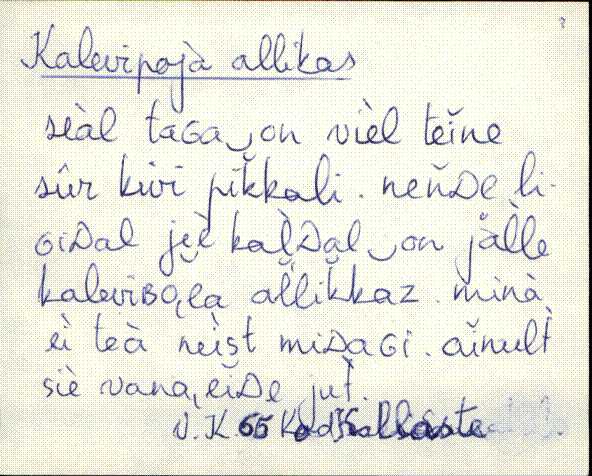 Kalevipoja allikas
sìàl taGa‿on vièl teĭne
sûr kivi pĭkkali. neňDe li-
GiDal jèè kalDal‿on jälle
kaleviBoja aľľikkaz. minà
èi teà nèist miDaGi. aĭnult
siè vana eĭDe juť.
V. K. 66 Kodavere Kallaste